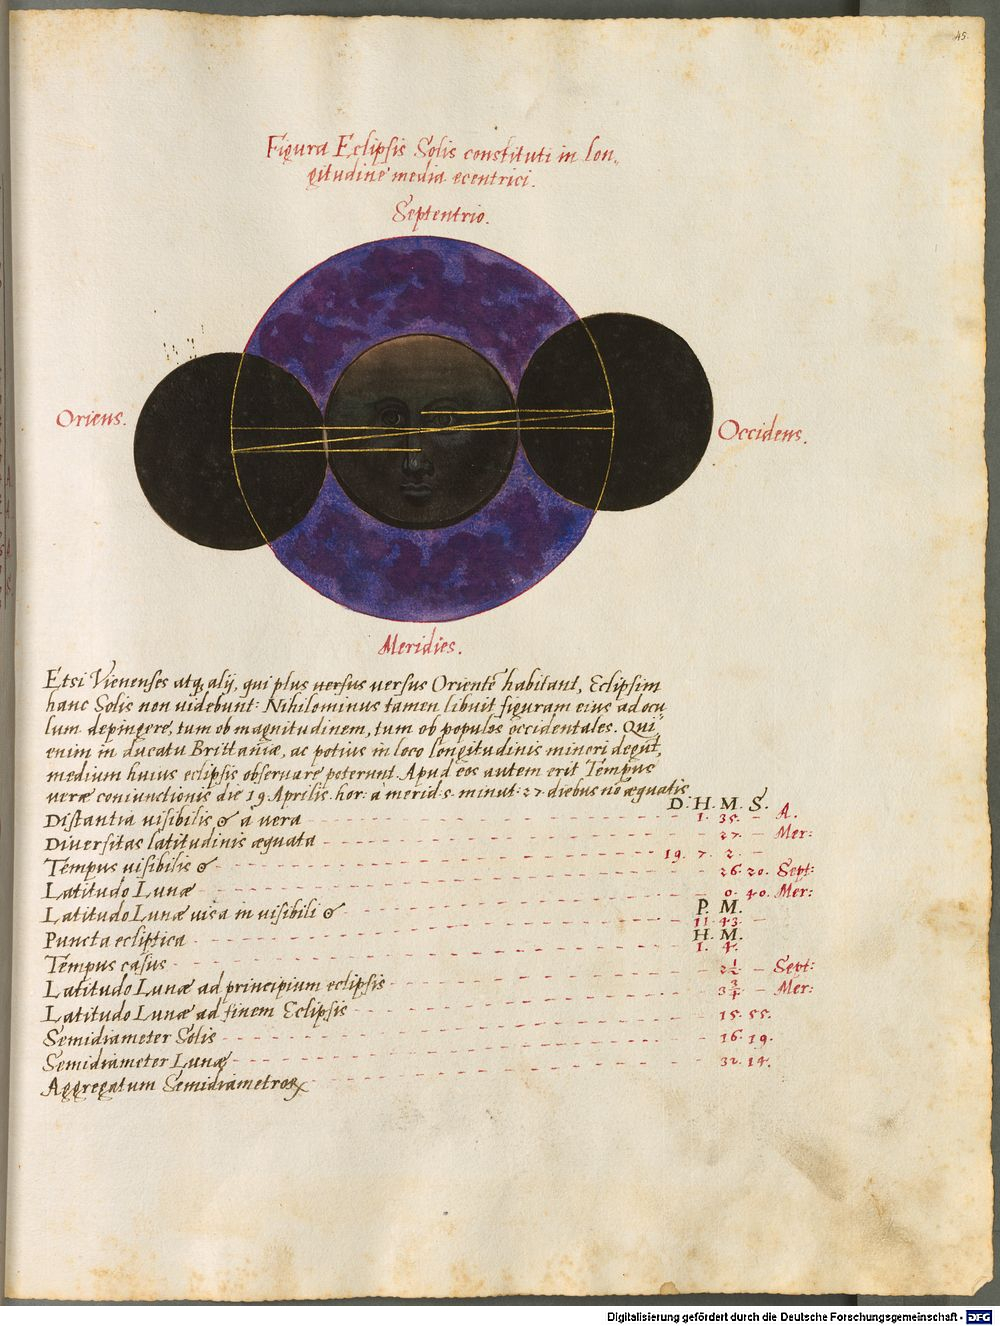 45.
Figura Eclipsis Solis constituti in lon„
gitudine media ecentrici.
Septentrio.
Oriens.
Occidens.
Meridies.
Etsi Vienenses atq, alij, qui plus versus versus Orientē habitant, Eclipsim
hanc Solis non uidebunt: Nihilominus tamen libuit figuram eius ad ocu
lum depingere, tum ob magnitudinem, tum ob populos occidentales. Qui
enim in ducatu Brittaniæ, ac potius in loco longitudinis minori degūt,
medium huius eclipsis obseruare poterunt. Apud eos autem erit Tempus
veræ coniunctionis die 19. Aprilis. hor: à merid. 5. minut: 27. diebus nō æquatis
D. H. M. S.
Distantia uisibilis ☌ à vera 1. 35. — A.
Diuersitas latitudinis æquata 27. — Mer:
Tempus uisibilis ☌ 19. 7. 2. —
Latitudo Lunæ 26. 20. Sept:
Latitudo Lunæ uisa in uisibili ☌ 0. 40. Mer:
P. M.
Puncta ecliptica 11. 43. —
H. M.
Tempus casus 1. 4.
Latitudo Lunæ ad principium eclipsis 2 1/2 — Sept:
Latitudo Lunæ ad finem Eclipsis 3 3/4 — Mer:
Semidiameter Solis 15. 55.
Semidiameter Lunæ 16. 19.
Aggregatum Semidiametroꝝ 32. 14.
Digitalisierung gefördert durch die Deutsche Forschungsgemeinschaft - DFG